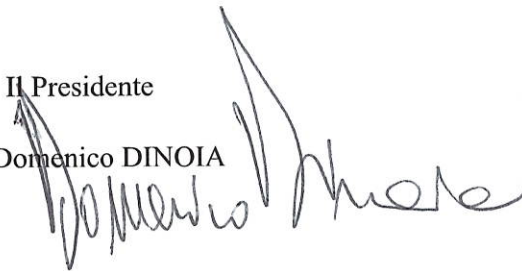 Il Presidente
Domenico DINOIA
Domenico Dinoia